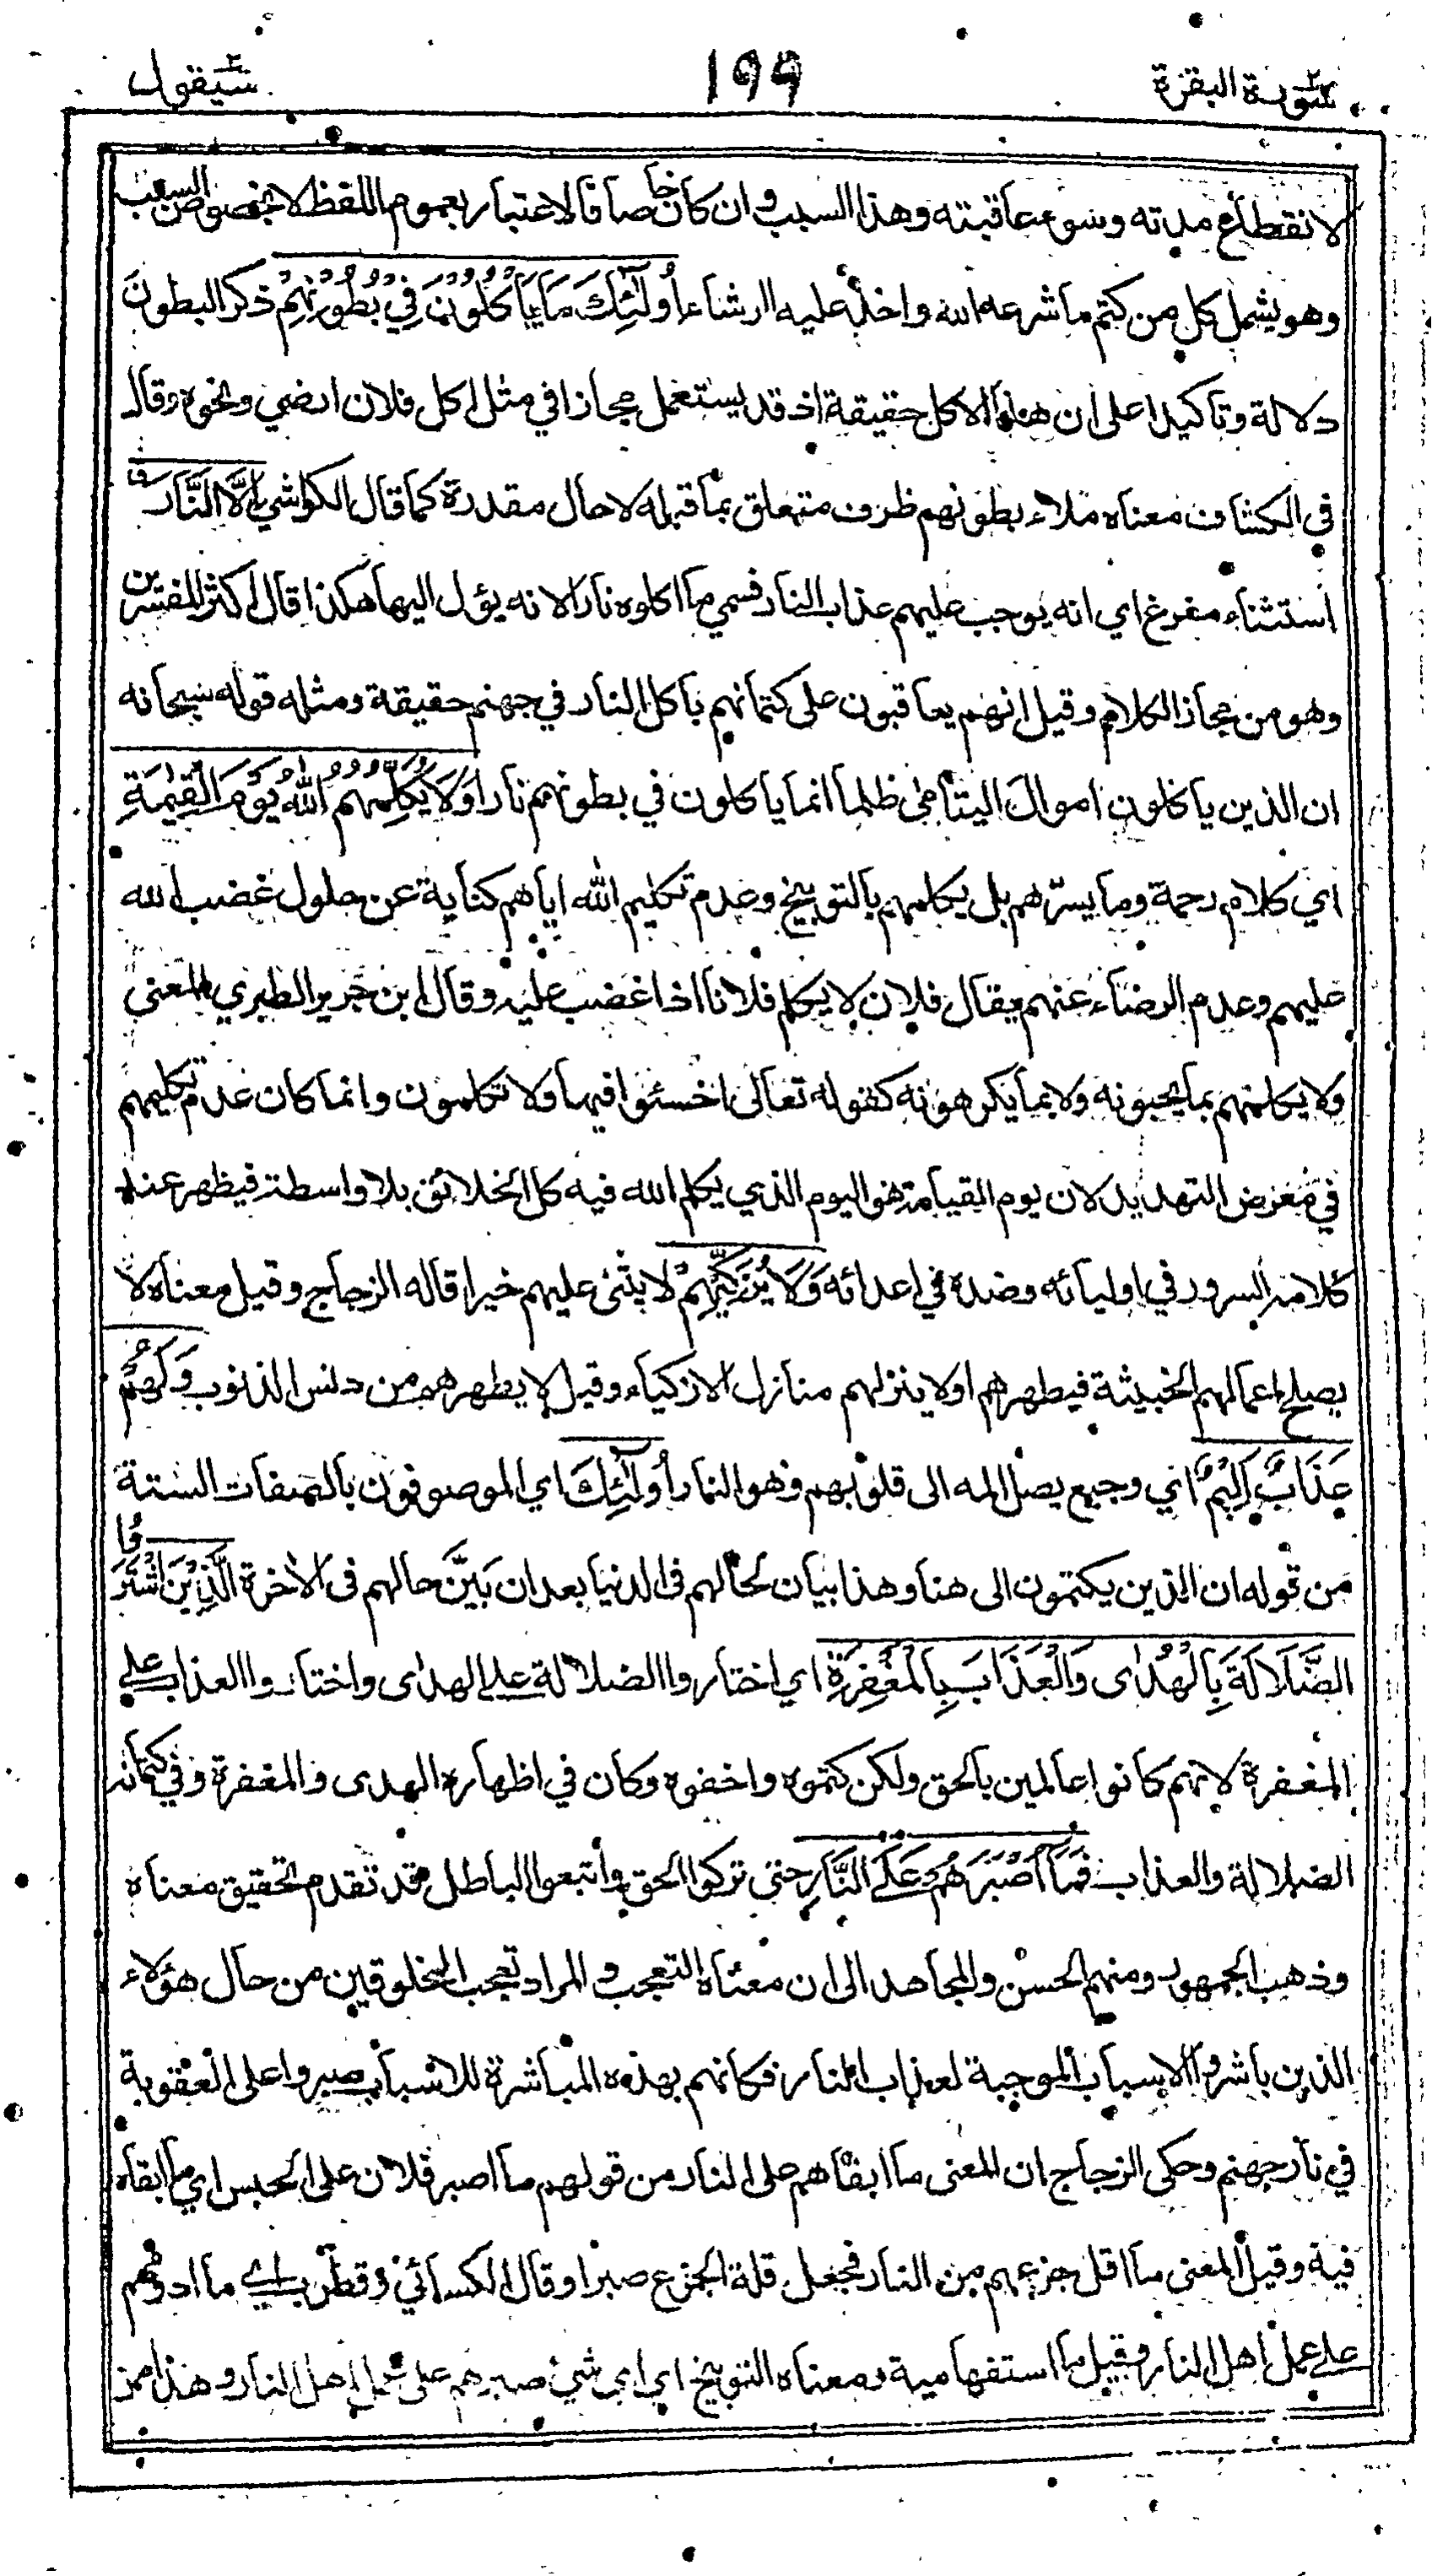 سيقول ١٩٩ سورة البقرة
لانقطاع مدته وسوء عاقبته وهذا السبب وان كان خاصا فالاعتبار بعموم اللفظ لا بخصوص السبب
وهو يشمل كل من كتم ما شرعه الله واخذ عليه الرشاء أُولٰٓئِكَ مَا يَأْكُلُوْنَ فِيْ بُطُوْنِهِمْ ذكر البطون
دلالة وتاكيدا على ان هذا الاكل حقيقة اذ قد يستعمل مجازا في مثل اكل فلان ارضي ونحوه وقال
في الكشاف معناه ملاء بطونهم ظرف متعلق بما قبله لا حال مقدرة كما قال الكواشي اِلَّا النَّارَ
استثناء مفرغ اي انه يوجب عليهم عذاب النار فسمي ما اكلوه نارا لانه يؤل اليها هكذا قال اكثر المفسرين
وهو من مجاز الكلام وقيل انهم يعاقبون على كتمانهم باكل النار في جهنم حقيقة ومثله قوله سبحانه
ان الذين ياكلون اموال اليتامى ظلما انما ياكلون في بطونهم نارا وَلَا يُكَلِّمُهُمُ اللّٰهُ يَوْمَ الْقِيٰمَةِ
اي كلام رحمة وما يسرّهم بل يكلمهم بالتوبيخ وعدم تكليم الله اياهم كناية عن حلول غضب الله
عليهم وعدم الرضاء عنهم يقال فلان لا يكلم فلانا اذا غضب عليه وقال ابن جرير الطبري المعنى
ولا يكلمهم بما يحبونه ولا بما يكرهونه كقوله تعالى اخسئوا فيها ولا تكلمون وانما كان عدم تكليمهم
في معرض التهديد لان يوم القيامة هو اليوم الذي يكلم الله فيه كل الخلائق بلا واسطة فيظهر عند
كلامه السرور في اوليائه وضده في اعدائه وَلَا يُزَكِّيْهِمْ لا يثنى عليهم خيرا قاله الزجاج وقيل معناه لا
يصلح اعمالهم الخبيثة فيطهرهم اولا ينزلهم منازل الازكياء وقيل لا يطهرهم من دنس الذنوب وَلَهُمْ
عَذَابٌ اَلِيْمٌ اي وجيع يصل المه الى قلوبهم وهو النار أُولٰٓئِكَ اي الموصوفون بالصفات الستة
من قوله ان الذين يكتمون الى هنا وهذا بيان لحالهم فى الدنيا بعد ان بَيَّنَ حالهم فى الاٰخرة الَّذِيْنَ اشْتَرَوُا
الضَّلَالَةَ بِالْهُدٰى وَالْعَذَابَ بِالْمَغْفِرَةِ اي اختاروا الضلالة على الهدٰى واختاروا العذاب على
المغفرة لانهم كانوا عالمين بالحق ولكن كتموه واخفوه وكان في اظهاره الهدى والمغفرة وفي كتمانه
الضلالة والعذاب فَمَا اَصْبَرَهُمْ عَلَى النَّارِ حتى تركوا الحق واتبعوا الباطل وقد تقدم تحقيق معناه
وذهب الجمهور ومنهم الحسن والمجاهد الى ان معناه التعجب والمراد تعجب المخلوقين من حال هؤلاء
الذين باشروا الاسباب الموجبة لعذاب النار فكانهم بهذه المباشرة للاسباب صبروا على العقوبة
في نار جهنم وحكى الزجاج ان المعنى ما ابقاهم على النار من قولهم ما اصبر فلان على الحبس اي ما ابقاه
فيه وقيل المعنى ما اقل جزعهم من النار فجعل قلة الجزع صبرا وقال الكسائي وقطرب اي ما ادومهم
على عمل اهل النار وقيل ما استفهامية ومعناه التوبيخ اي اي شيْ صبرهم على عمل اهل النار وهذا من